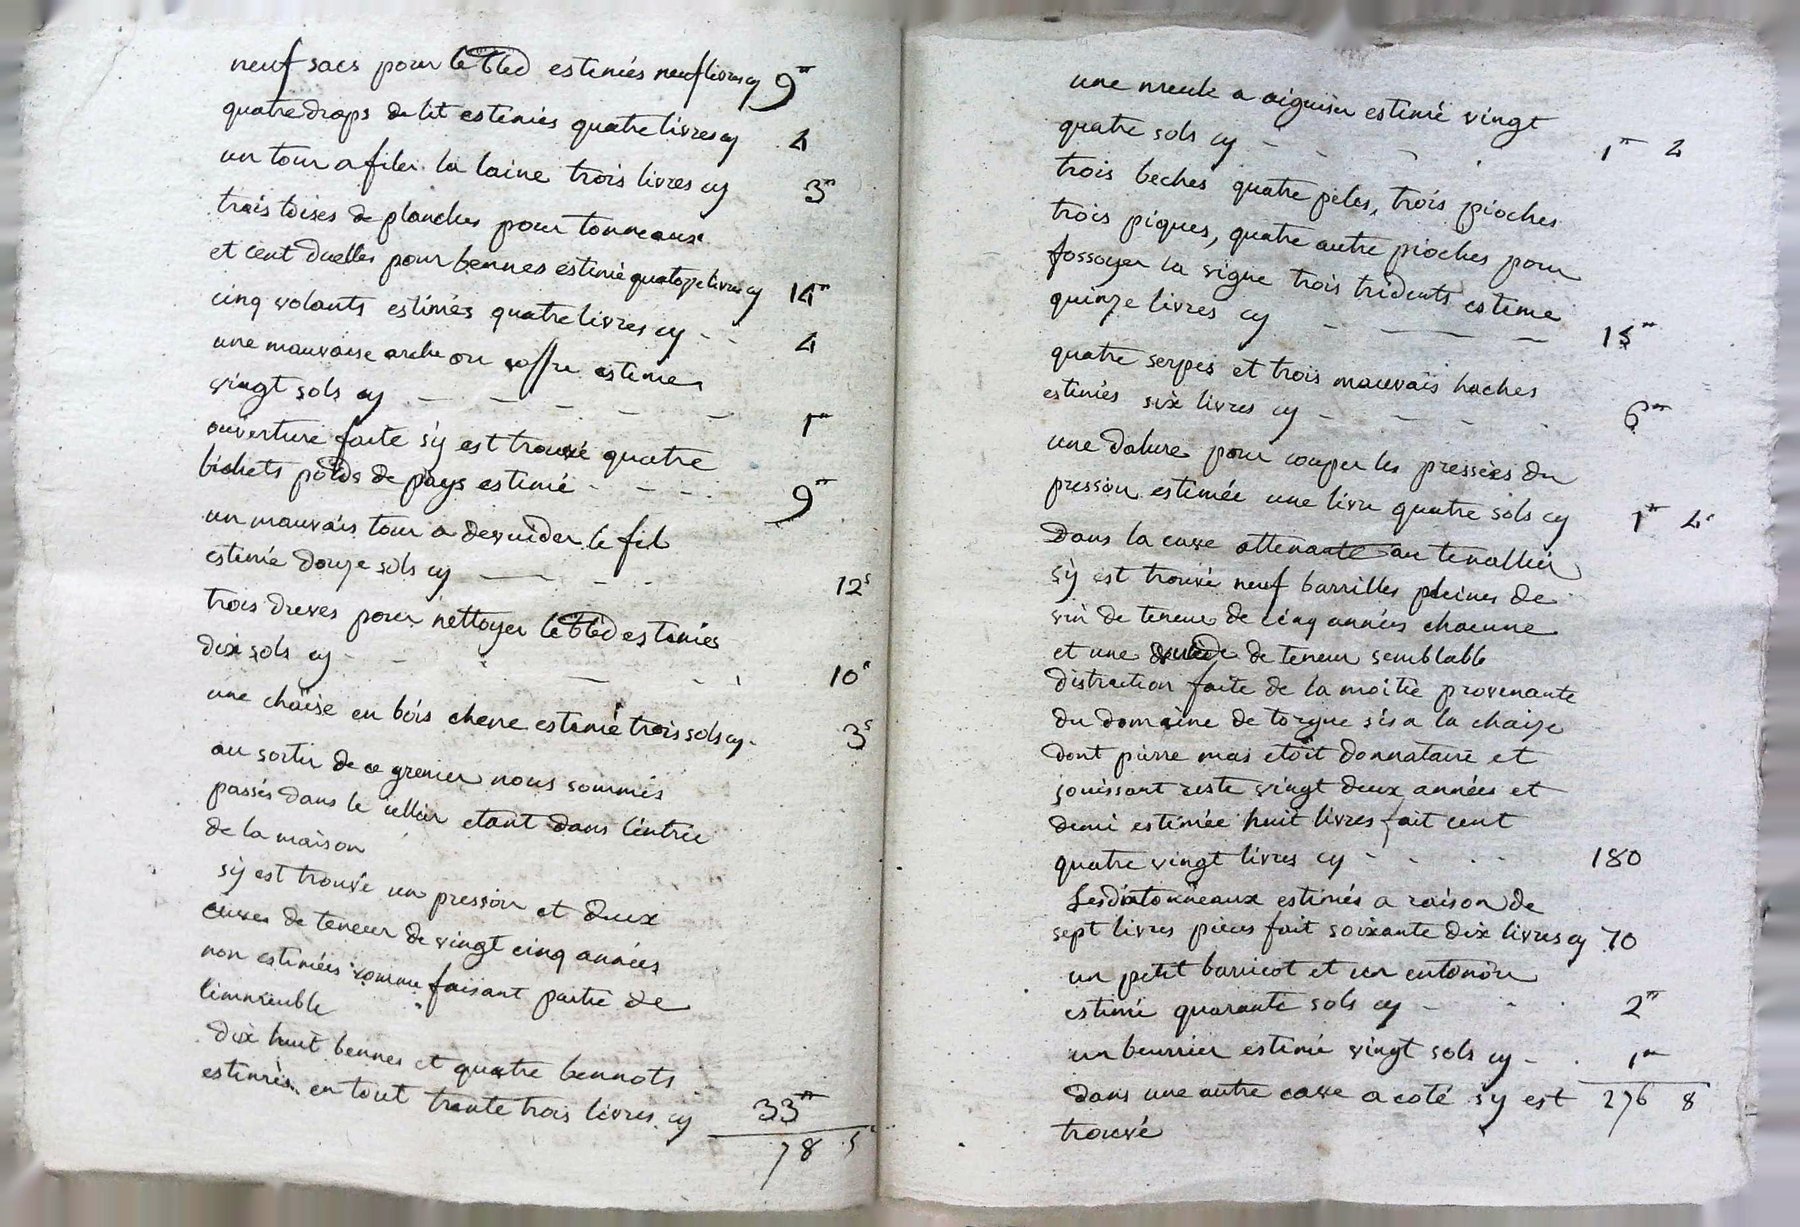 neuf sacs pour le bled estimés neuf livres cy 9#
quatre draps de lit estimés quatre livres cy 4
un tour a filer la laine trois livres cy 3#
trois toises de planches pour tonneaux
et cent duelles pour bennes estimé quatorze livres cy 14#
cinq volants estimés quatre livres cy - - 4
une mauvaise arche ou coffre estimée
vingt sols cy - - - - - 1#
ouverture faite s'y est trouvé quatre
bichets poids de pays estimé - - - 9#
un mauvais tour a devuider le fil
estimé douze sols cy - - - 12s
trois dreves pour nettoyer le bled estimés
dix sols cy - - - - 10s
une chaise en bois chene estimé trois sols cy - 3s
au sortir de ce grenier nous sommes
passés dans le cellier etant dans l'entrée
de la maison
s'y est trouvé un pressoir et deux
cuves de teneur de vingt cinq années
non estimées comme faisant partie de
l'immeuble
dix huit bennes et quatre bennots
estimés en tout trente trois livres cy 33#
78 5s
une meule a aiguiser estimé vingt
quatre sols cy - - - 1# 4
trois beches quatre peles, trois pioches
trois piques, quatre autre pioches pour
fossoyer la vigne trois tridents estimé
quinze livres cy - - - 15#
quatre serpes et trois mauvais haches
estimés six livres cy - - - - 6#
une dolure pour couper les pressées du
pressoir estimée une livre quatre sols cy 1# 4s
Dans la cave attenante au tenallier
s'y est trouvé neuf barrilles pleines de
vin de teneur de cinq années chacune
et une de teneur semblable
distraction faite de la moitié provenante
du domaine de torgue sis a la chaize
dont pierre mas etoit donnataire et
jouissant reste vingt deux années et
demi estimée huit livres fait cent
quatre vingt livres cy - - - - 180
Lesdix tonneaux estimés a raison de
sept livres pieces fait soixante dix livres cy 70
un petit barricot et un entonoir
estimé quarante sols cy - - - 2#
un beurrier estimé vingt sols cy - . 1#
dans une autre cave a coté s'y est 276 8
trouvé